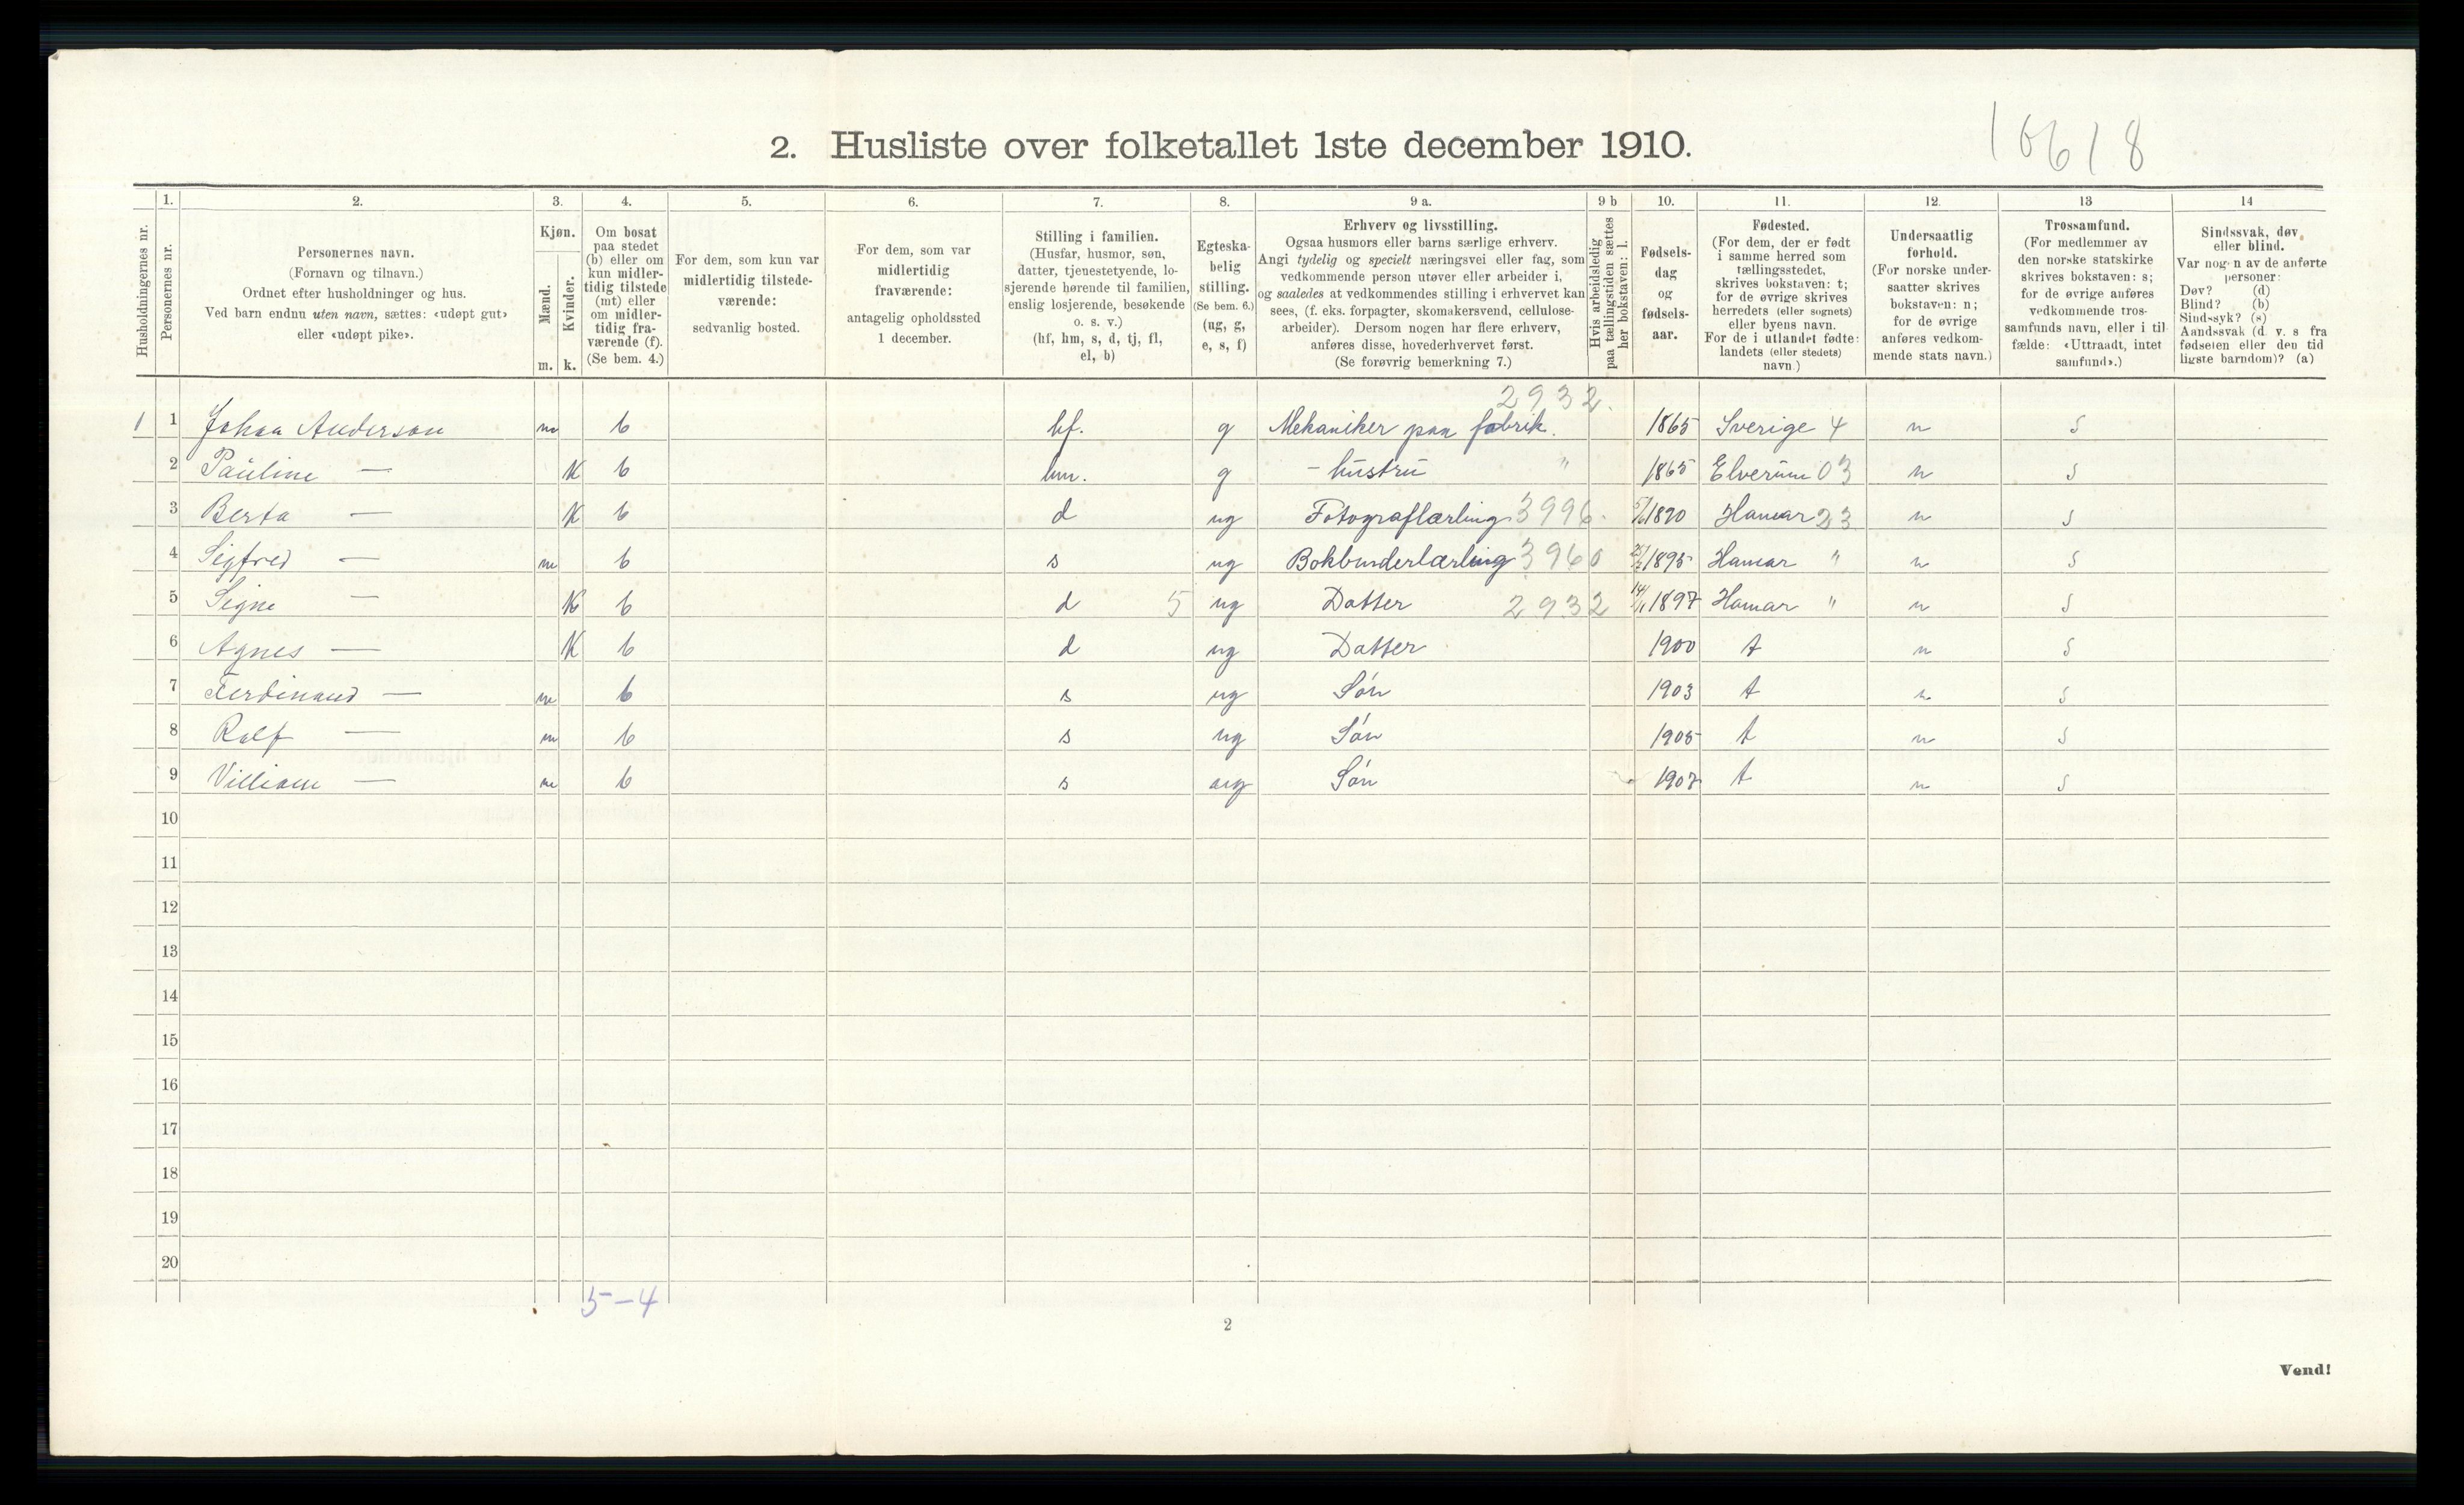 16618
2. Husliste over folketallet 1ste december 1910.
Husholdningernes nr.
1.
Personernes nr.
2.
Personernes navn.
(Fornavn og tilnavn.)
Ordnet efter husholdninger og hus.
Ved barn endnu uten navn, sættes: «udøpt gut»
eller «udøpt pike».
3.
Kjøn.
Mænd.
Kvinder.
m. k.
4.
Om bosat
paa stedet
(b) eller om
kun midler-
tidig tilstede
(mt) eller
om midler-
tidig fra-
værende (f).
(Se bem. 4.)
5.
For dem, som kun var
midlertidig tilstede-
værende:
sedvanlig bosted.
6.
For dem, som var
midlertidig
fraværende:
antagelig opholdssted
1 december.
7.
Stilling i familien.
(Husfar, husmor, søn,
datter, tjenestetyende, lo-
sjerende hørende til familien,
enslig losjerende, besøkende
o. s. v.)
(hf, hm, s, d, tj, fl,
el, b)
8.
Egteska-
belig
stilling.
(Se bem. 6.)
(ug, g,
e, s, f)
9 a.
Erhverv og livsstilling.
Ogsaa husmors eller barns særlige erhverv.
Angi tydelig og specielt næringsvei eller fag, som
vedkommende person utøver eller arbeider i,
og saaledes at vedkommendes stilling i erhvervet kan
sees, (f. eks. forpagter, skomakersvend, cellulose-
arbeider). Dersom nogen har flere erhverv,
anføres disse, hovederhvervet først.
(Se forøvrig bemerkning 7.)
9 b
Hvis arbeidsledig
paa tællingstiden sættes
her bokstaven: l.
10.
Fødsels-
dag
og
fødsels-
aar.
11.
Fødested.
(For dem, der er født
i samme herred som
tællingsstedet,
skrives bokstaven: t;
for de øvrige skrives
herredets (eller sognets)
eller byens navn.
For de i utlandet fødte:
landets (eller stedets)
navn.)
12.
Undersaatlig
forhold.
(For norske under-
saatter skrives
bokstaven: n;
for de øvrige
anføres vedkom-
mende stats navn.)
13
Trossamfund.
(For medlemmer av
den norske statskirke
skrives bokstaven: s;
for de øvrige anføres
vedkommende tros-
samfunds navn, eller i til-
fælde: «Uttraadt, intet
samfund».)
14
Sindssvak, døv
eller blind.
Var nogen av de anførte
personer:
Døv? (d)
Blind? (b)
Sindssyk? (s)
Aandssvak (d. v. s. fra
fødselen eller den tid-
ligste barndom)? (a)
2932.
1 1 Johan Anderson m b hf. g Mekaniker paa fabrik. 1865 Sverige 4 n s
2 Pauline — K b hm. g - hustru " 1865 Elverum 03 n s
3 Berta — K b d ug Fotograflærling 3996. 1890 Hamar 23 n s
4 Sigfred — m b s ug Bokbinderlærling 3960 1895 Hamar " n s
5 Signe — K b d 5 ug Datter 2932 1897 Hamar " n s
6 Agnes — K b d ug Datter 1900 t n s
7 Ferdinand — m b s ug Søn 1903 t n s
8 Rolf — m b s ug Søn 1905 t n s
9 Villiam — m b s ug Søn 1907 t n s
10
11
12
13
14
15
16
17
18
19
20
5-4
2
Vend!